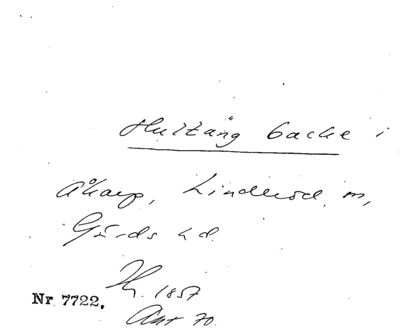 Hultäng backe i
Åkarp, Linderöd, m,
Gärds hd.
H. 1857
Ant 70
Nr 7722.